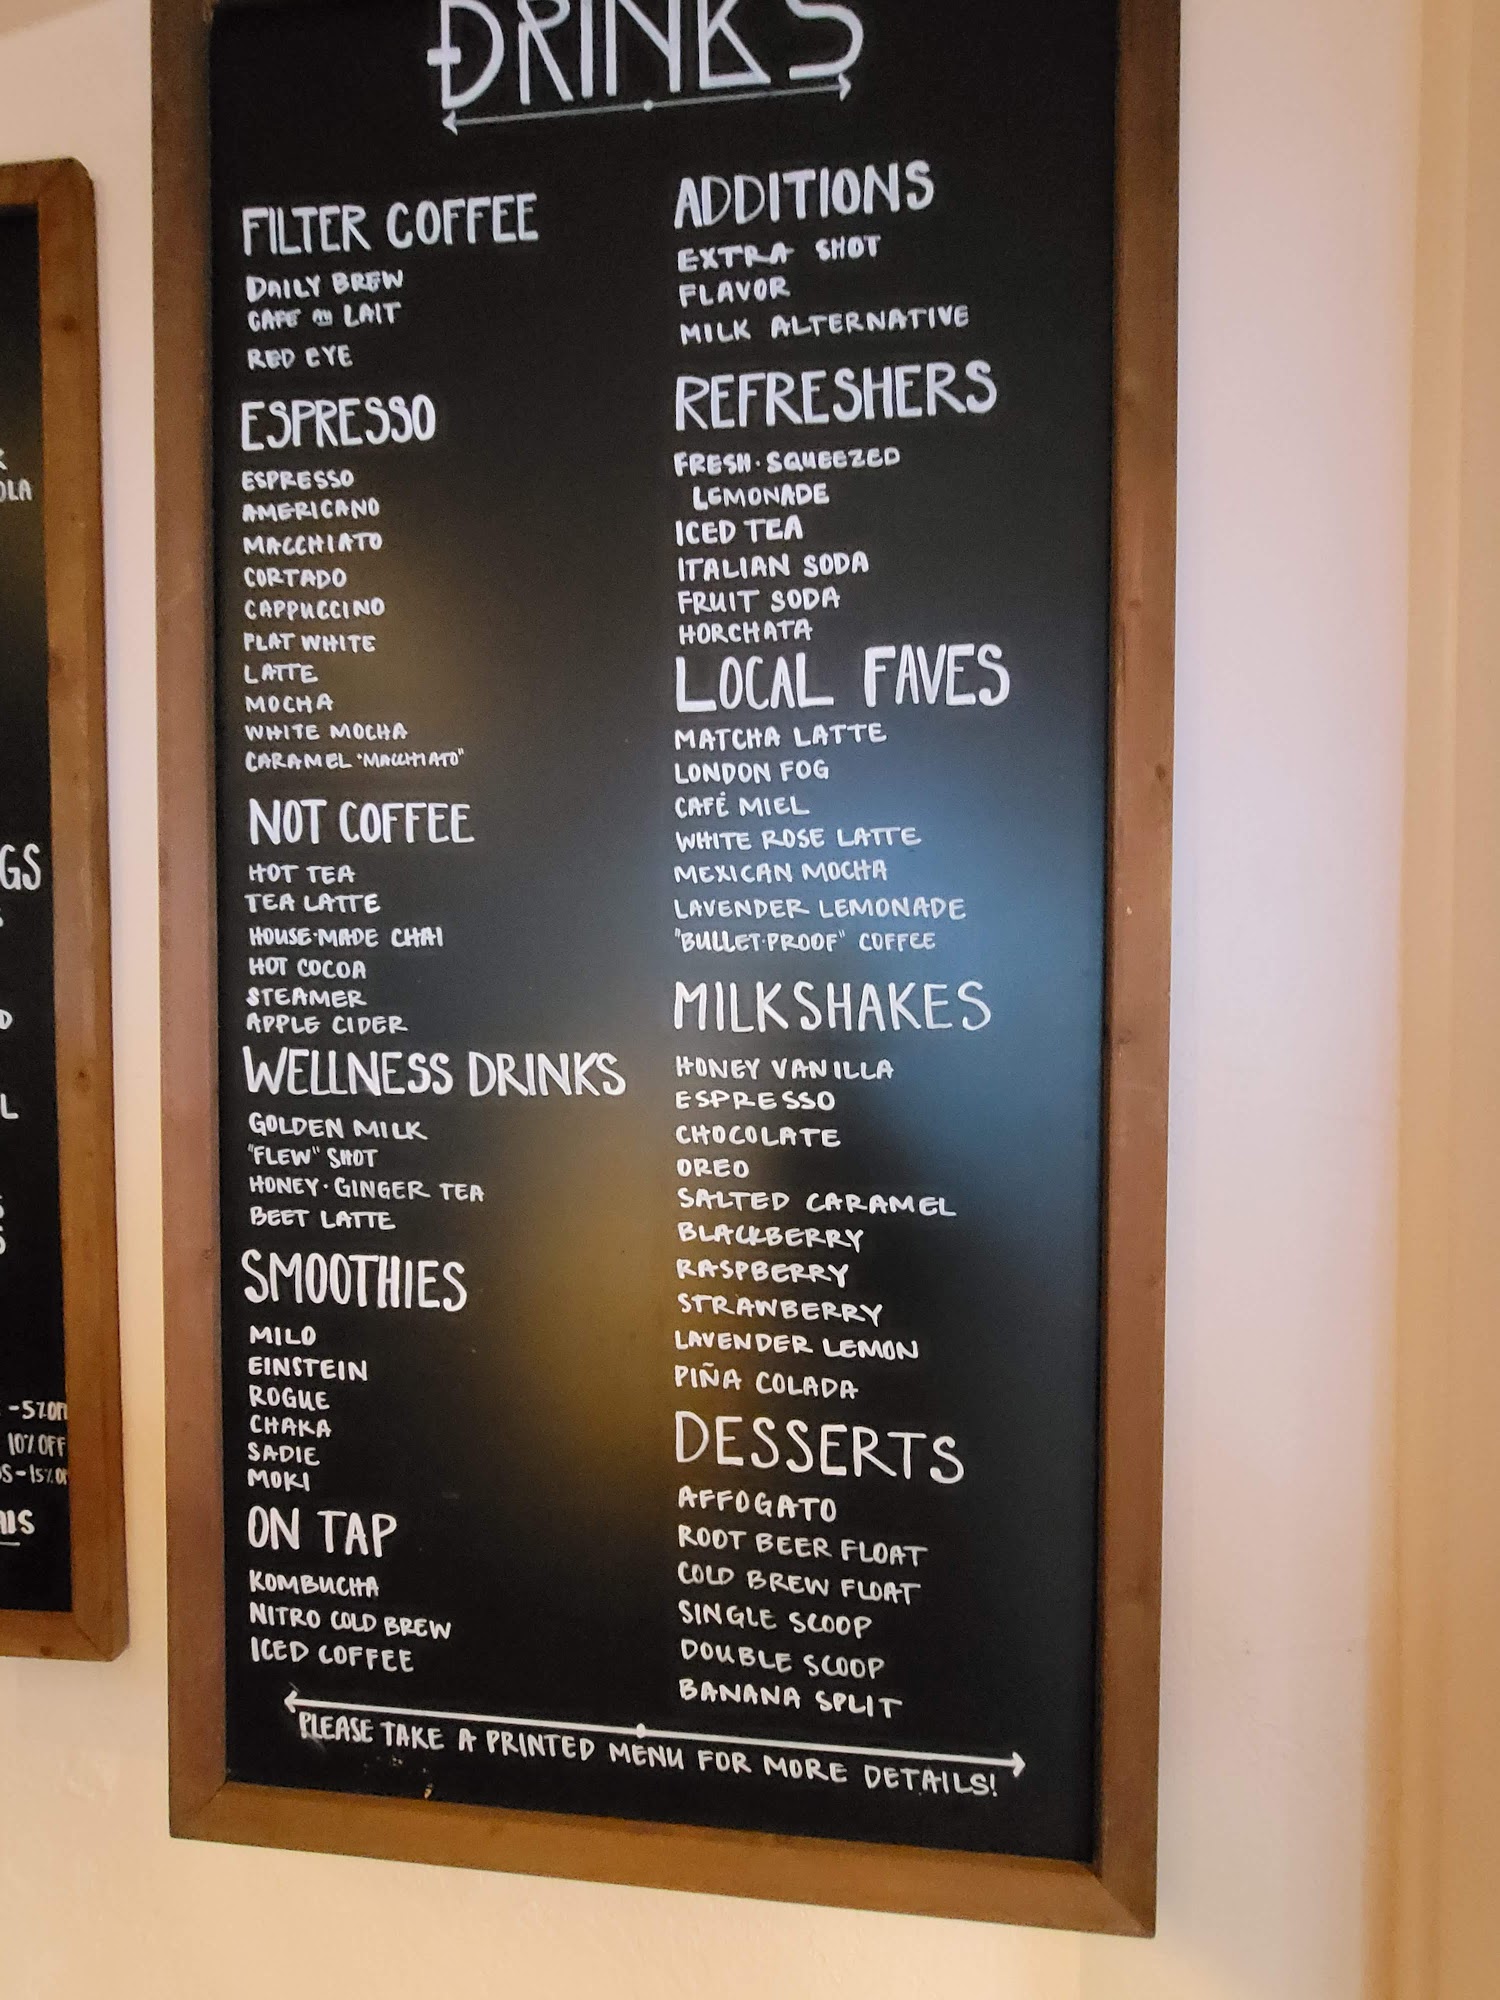 DRINKS
FILTER COFFEE
DAILY BREW
CAFE au LAIT
RED EYE
ESPRESSO
ESPRESSO
AMERICANO
MACCHIATO
CORTADO
CAPPUCCINO
FLAT WHITE
LATTE
MOCHA
WHITE MOCHA
CARAMEL "MACCHIATO"
NOT COFFEE
HOT TEA
TEA LATTE
HOUSE·MADE CHAI
HOT COCOA
STEAMER
APPLE CIDER
WELLNESS DRINKS
GOLDEN MILK
"FLEW" SHOT
HONEY·GINGER TEA
BEET LATTE
SMOOTHIES
MILO
EINSTEIN
ROGUE
CHAKA
SADIE
MOKI
ON TAP
KOMBUCHA
NITRO COLD BREW
ICED COFFEE
ADDITIONS
EXTRA SHOT
FLAVOR
MILK ALTERNATIVE
REFRESHERS
FRESH·SQUEEZED
LEMONADE
ICED TEA
ITALIAN SODA
FRUIT SODA
HORCHATA
LOCAL FAVES
MATCHA LATTE
LONDON FOG
CAFÉ MIEL
WHITE ROSE LATTE
MEXICAN MOCHA
LAVENDER LEMONADE
"BULLET·PROOF" COFFEE
MILKSHAKES
HONEY VANILLA
ESPRESSO
CHOCOLATE
OREO
SALTED CARAMEL
BLACKBERRY
RASPBERRY
STRAWBERRY
LAVENDER LEMON
PIÑA COLADA
DESSERTS
AFFOGATO
ROOT BEER FLOAT
COLD BREW FLOAT
SINGLE SCOOP
DOUBLE SCOOP
BANANA SPLIT
PLEASE TAKE A PRINTED MENU FOR MORE DETAILS!
10% OFF